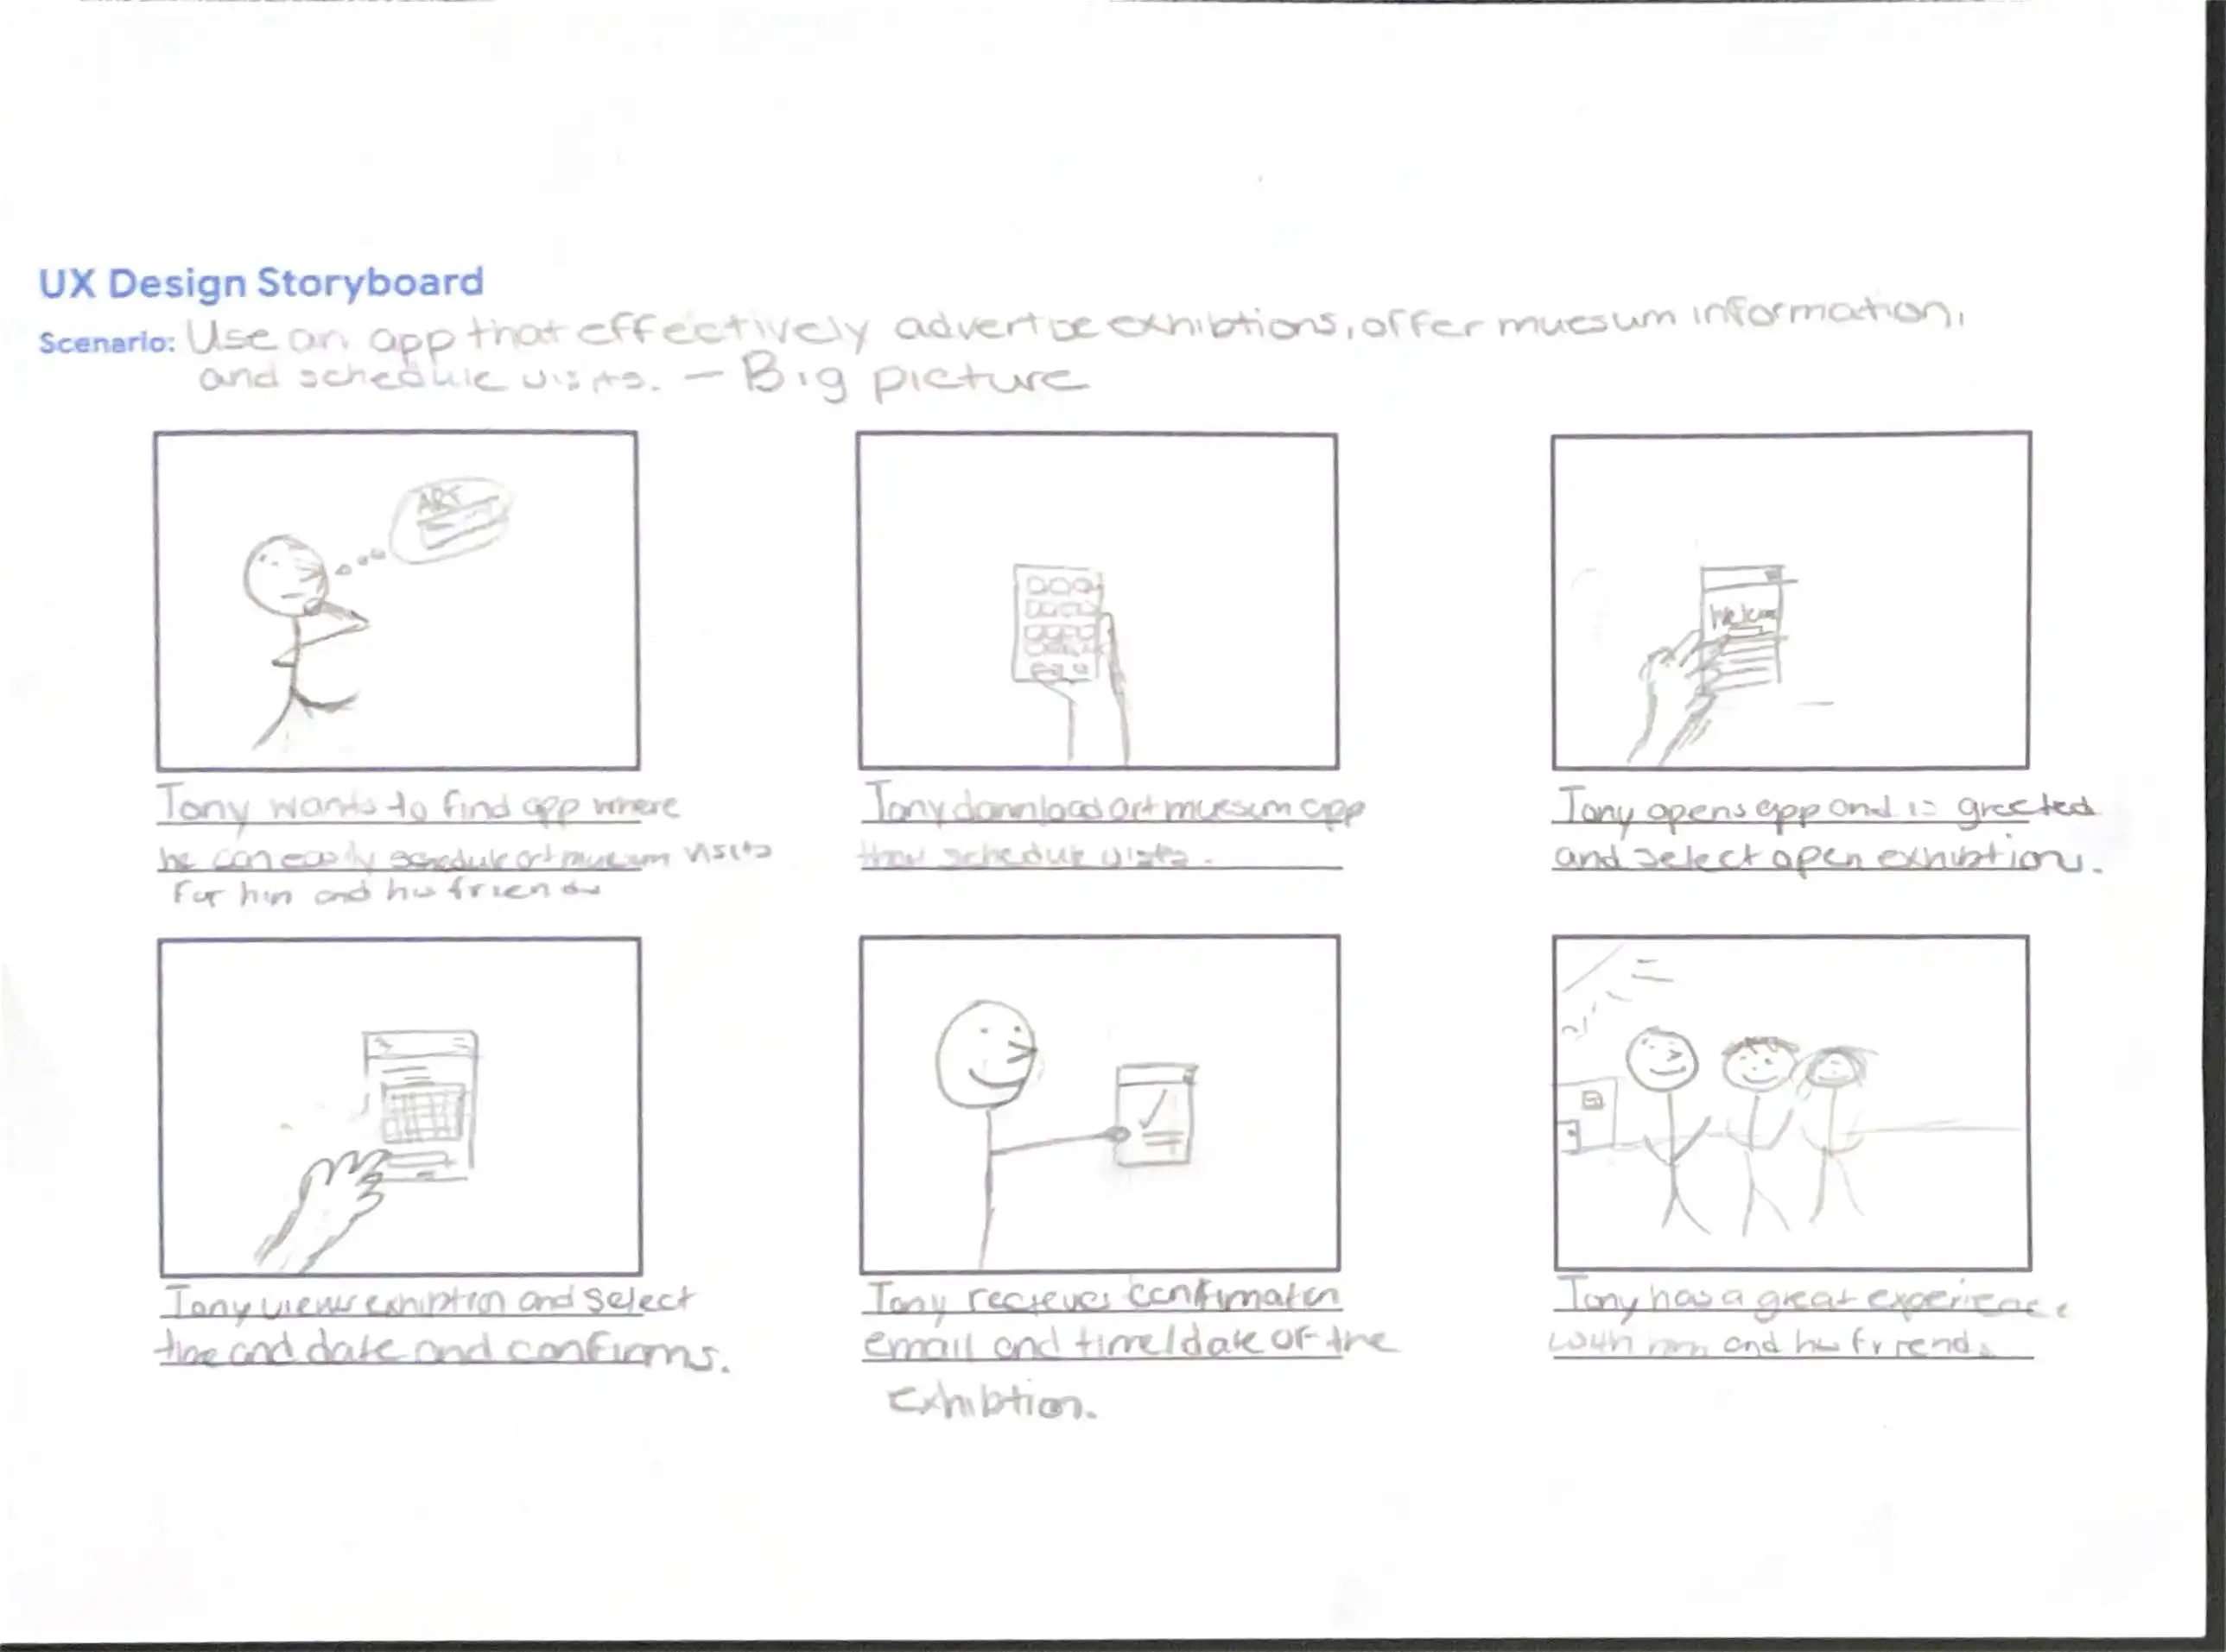 UX Design Storyboard
Scenario: Use an app that effectively advertise exhibtions, offer muesum information,
and schedule visits. — Big picture
ART
Welcome
Tony wants to find app where
he can easily schedule art museum visits
for him and his friends
Tony download art muesum app
that schedule visits.
Tony opens app and is greeted
and select open exhibtions.
Tony views exhibtion and select
time and date and confirms.
Tony recieves confirmation
email and time/date of the
exhibtion.
Tony has a great experience
with him and his friends